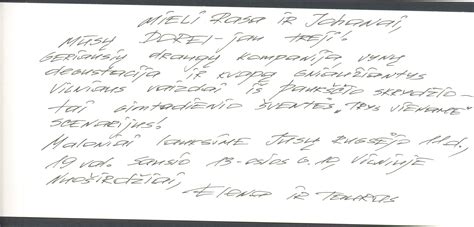 MIELI RASA IR JOHANAI,
MŪSŲ DOREI - jau TREJI!
GERIAUSIŲ draugų kompanija, vynų
degustacija IR kvapą gniaužiantys
VILNIAUS vaizdai iš paukščio skrydžio -
tai gimtadienio šventės „TRYS VIENAME"
SCENARIJUS!
Maloniai lauksime Jūsų RUGSĖJO 11 d.,
19 val. Sausio 13-osios G. 10, VILNIUJE
NUOŠIRDŽIAI,
ELENA IR TAURAS